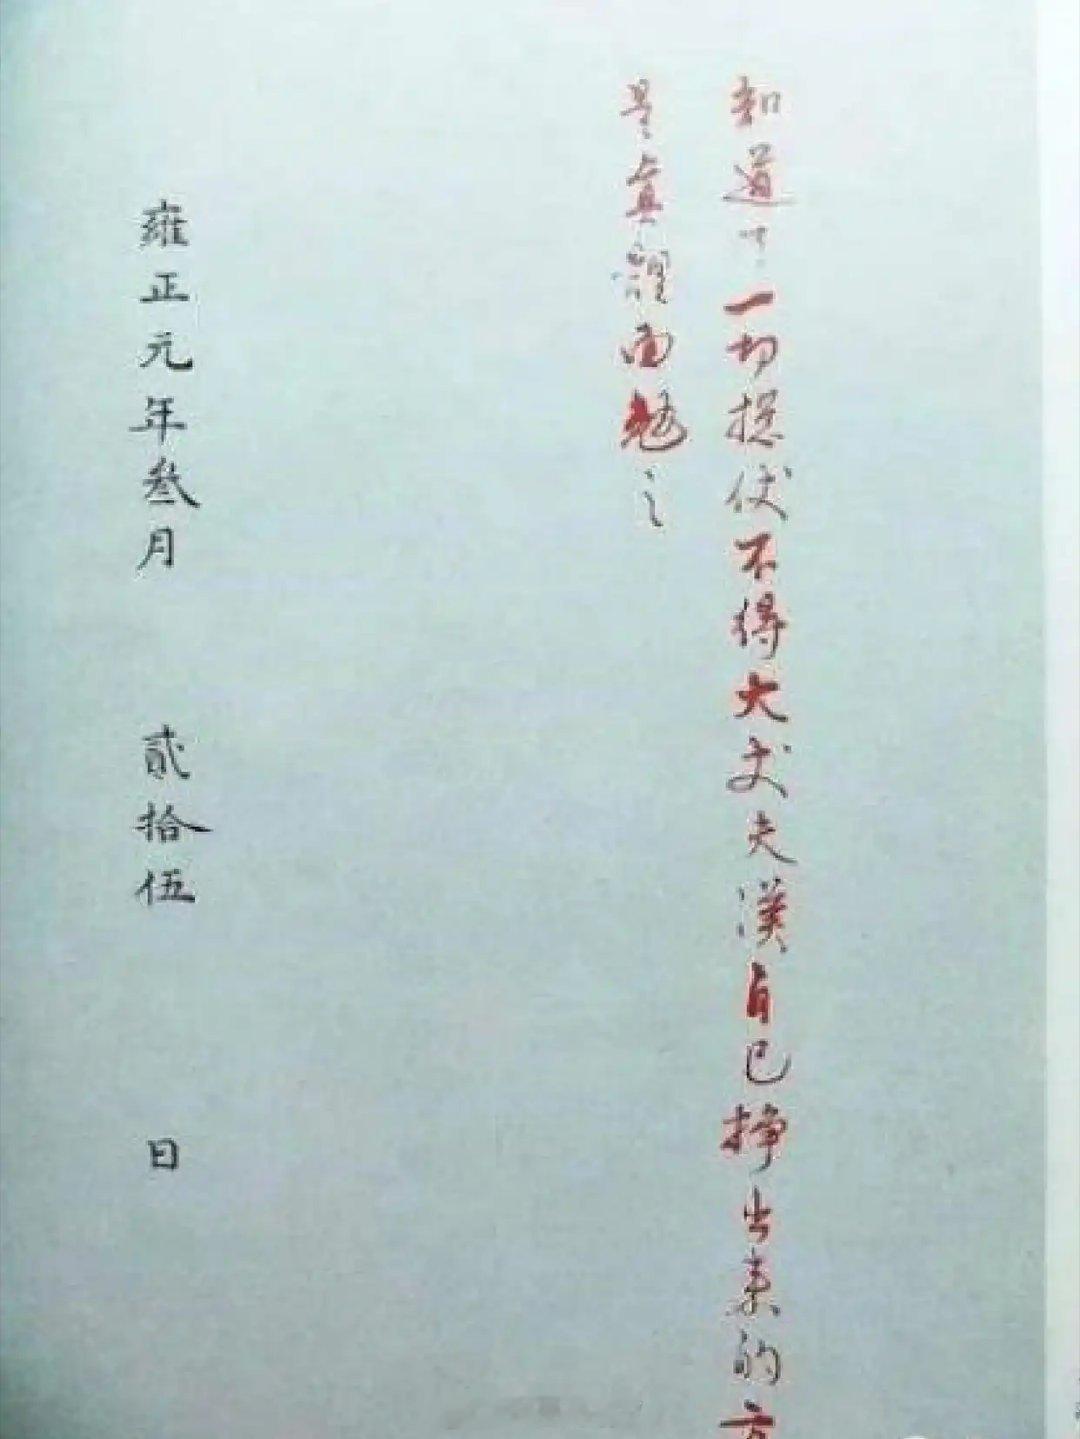 知道了一切摠伏不得大丈夫漢自己挣出来的方
是真體面勉之
雍正元年叁月 貳拾伍 日